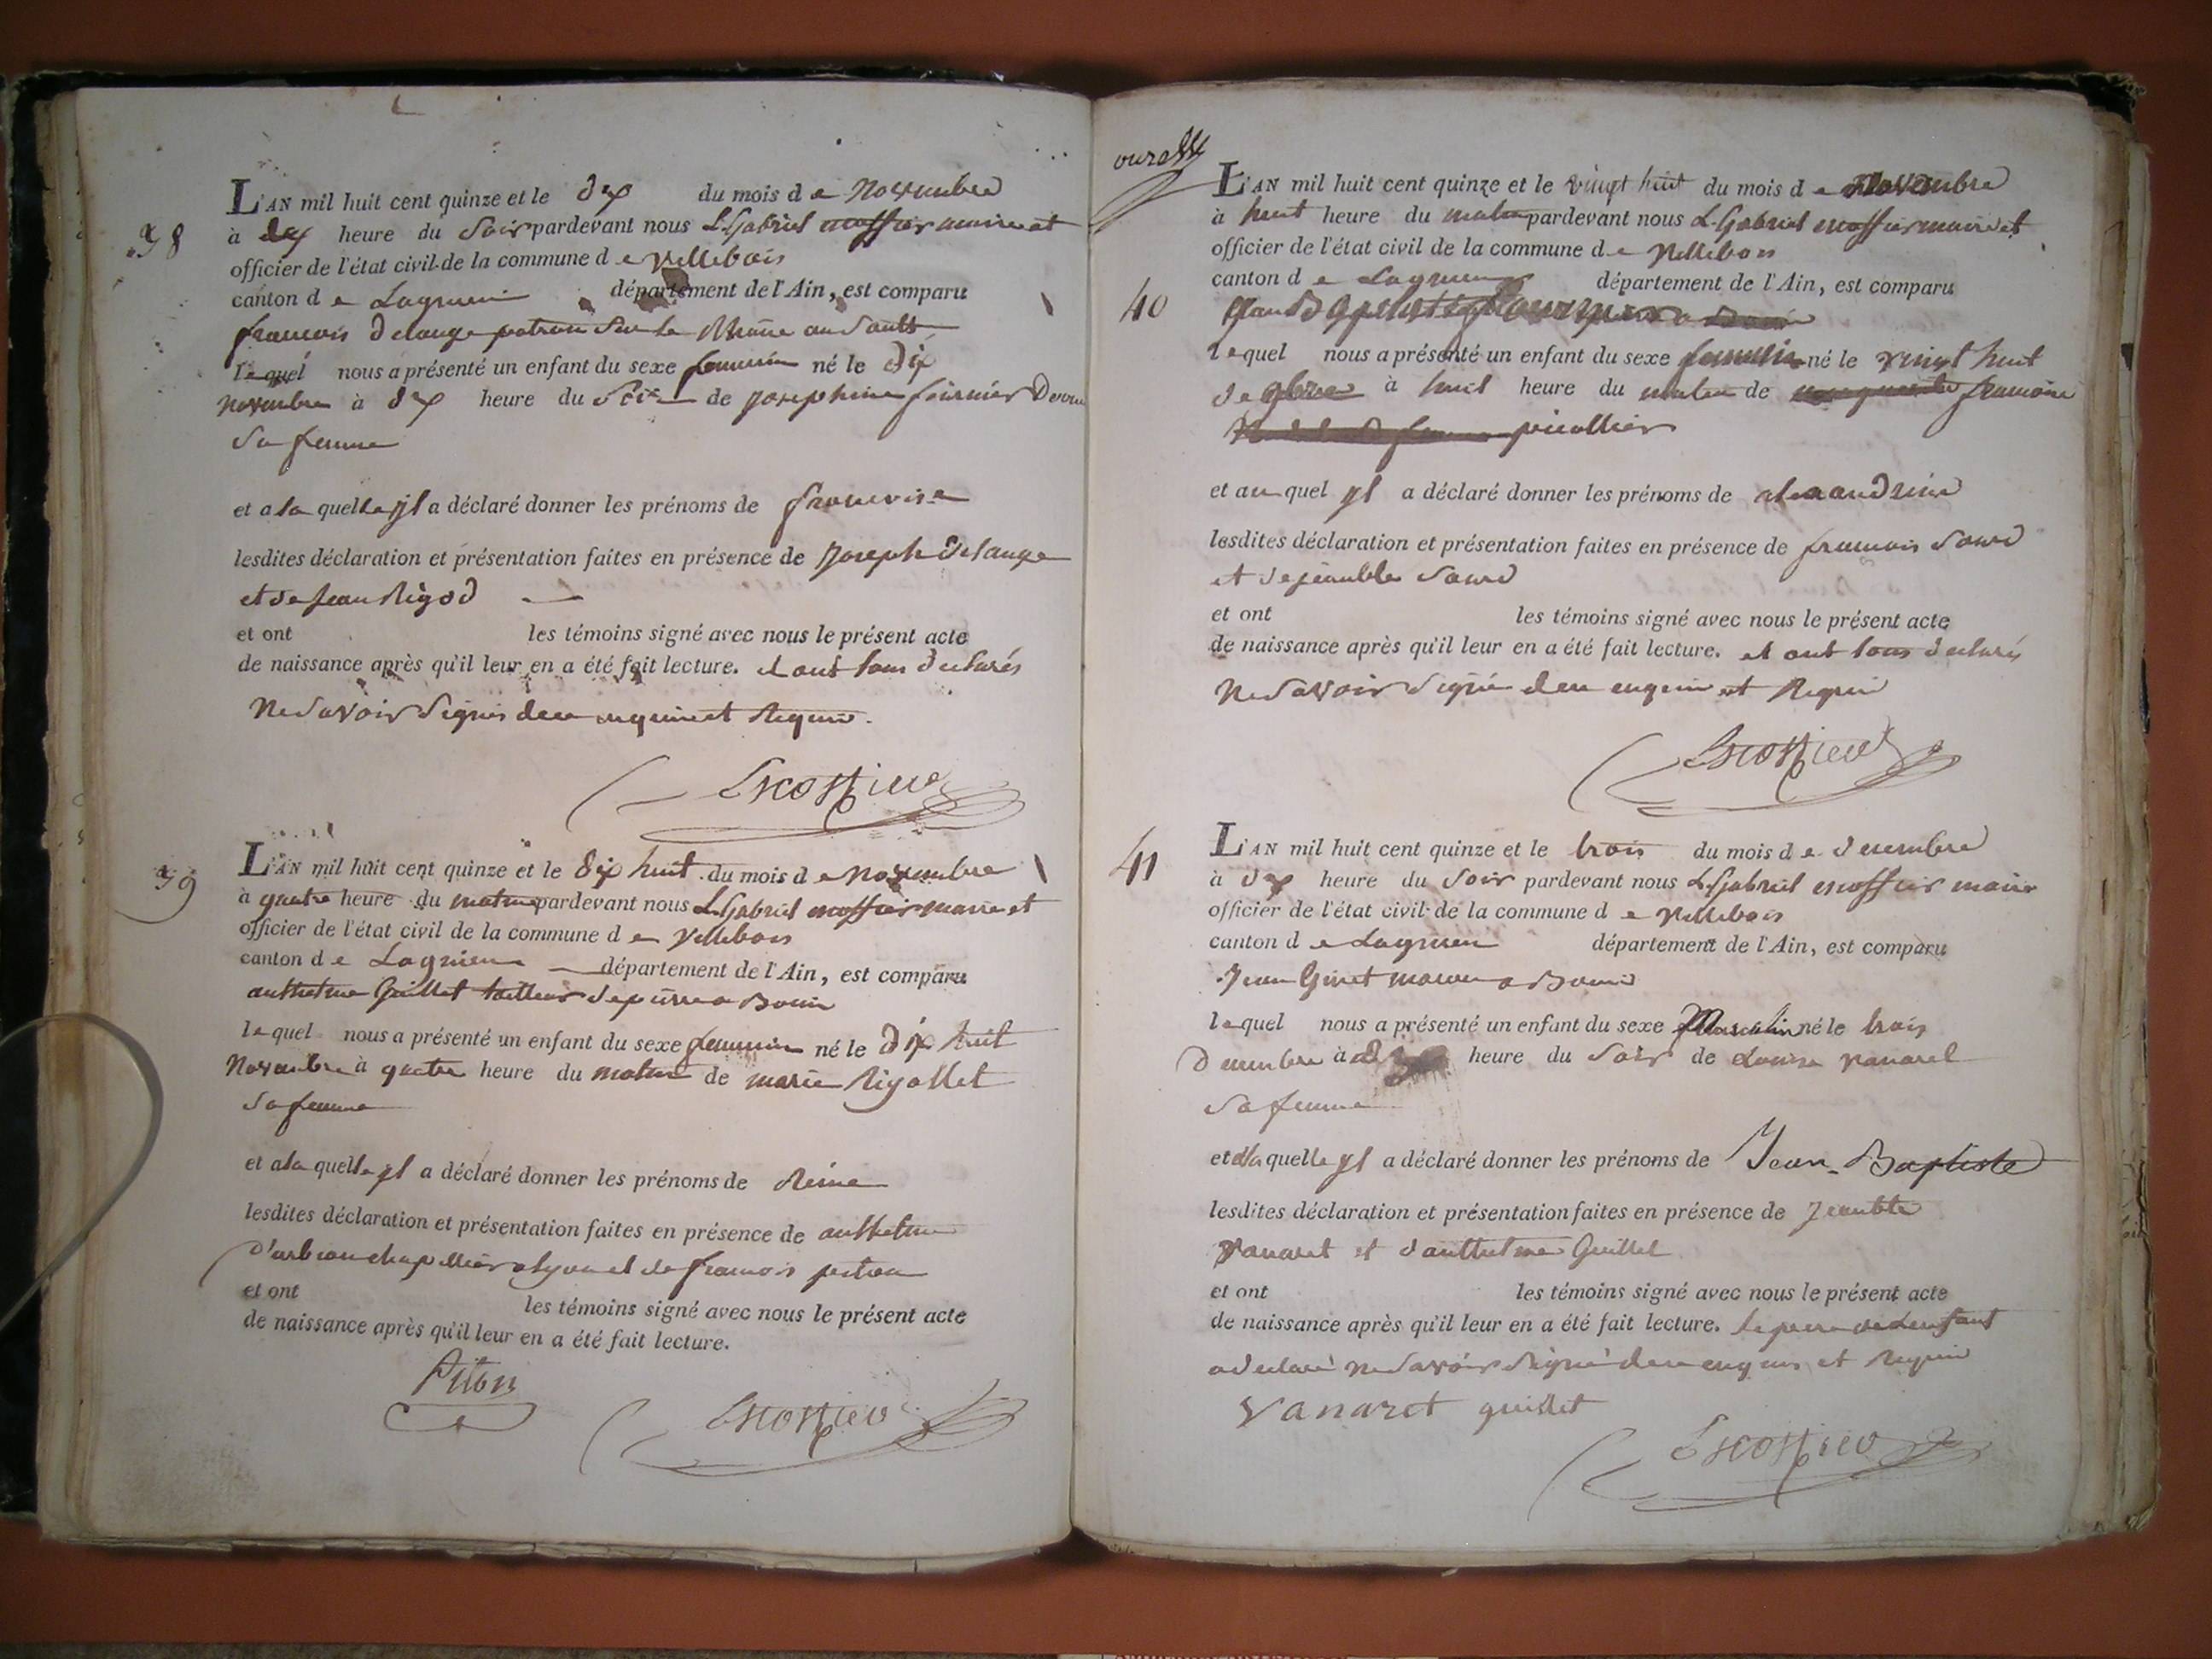 38
L'AN mil huit cent quinze et le dix du mois de Novembre
à dix heure du soir pardevant nous L. Gabriel escossier maire et
officier de l'état civil de la commune de villebois
canton de Lagnieu département de l'Ain, est comparu
francois delange patron sur le Rhône au Sault
lequel nous a présenté un enfant du sexe feminin né le dix
novembre à dix heure du soir de josephine fournier
sa femme
et a la quelle yl a déclaré donner les prénoms de francoise
lesdites déclaration et présentation faites en présence de Joseph delange
et de jean Rigod
et ont les témoins signé avec nous le présent acte
de naissance après qu'il leur en a été fait lecture. et ont tous declarés
ne savoir signés de ce enquis et Requis.
Escossieu
39
L'AN mil huit cent quinze et le dix huit du mois de novembre
à quatre heure du matin pardevant nous L. Gabriel escossier maire et
officier de l'état civil de la commune de villebois
canton de Lagnieu département de l'Ain, est comparu
anthelme Guillet tailleur de pierre a Bouis
lequel nous a présenté un enfant du sexe feminin né le dix huit
novembre à quatre heure du matin de marie Rigollet
sa femme
et a la quelle yl a déclaré donner les prénoms de Reine
lesdites déclaration et présentation faites en présence de anthelme
d'arbion chapellier a lyon et de francois piton
et ont les témoins signé avec nous le présent acte
de naissance après qu'il leur en a été fait lecture.
Piton
Escossieu
40
L'AN mil huit cent quinze et le vingt huit du mois de Novembre
à huit heure du matin pardevant nous L. Gabriel escossier maire et
officier de l'état civil de la commune de villebois
canton de Lagnieu département de l'Ain, est comparu
lequel nous a présenté un enfant du sexe feminin né le vingt huit
de 9bre à huit heure du matin de francoise
picollier
et au quel yl a déclaré donner les prénoms de alexandrine
lesdites déclaration et présentation faites en présence de francois
et de
et ont les témoins signé avec nous le présent acte
de naissance après qu'il leur en a été fait lecture. et ont tous declarés
ne savoir signé de ce enquis et Requis
Escossieu
41
L'AN mil huit cent quinze et le trois du mois de decembre
à dix heure du soir pardevant nous L. Gabriel escossier maire
officier de l'état civil de la commune de villebois
canton de Lagnieu département de l'Ain, est comparu
Jean Ginet macon a Bouis
lequel nous a présenté un enfant du sexe Masculin né le trois
decembre à heure du soir de Louise vanarel
sa femme
et a la quelle yl a déclaré donner les prénoms de Jean-Baptiste
lesdites déclaration et présentation faites en présence de
vanaret et d'anthelme Guillet
et ont les témoins signé avec nous le présent acte
de naissance après qu'il leur en a été fait lecture. le pere de l'enfant
a declaré ne savoir signé de ce enquis et requis
Vanaret guillet
Escossieu